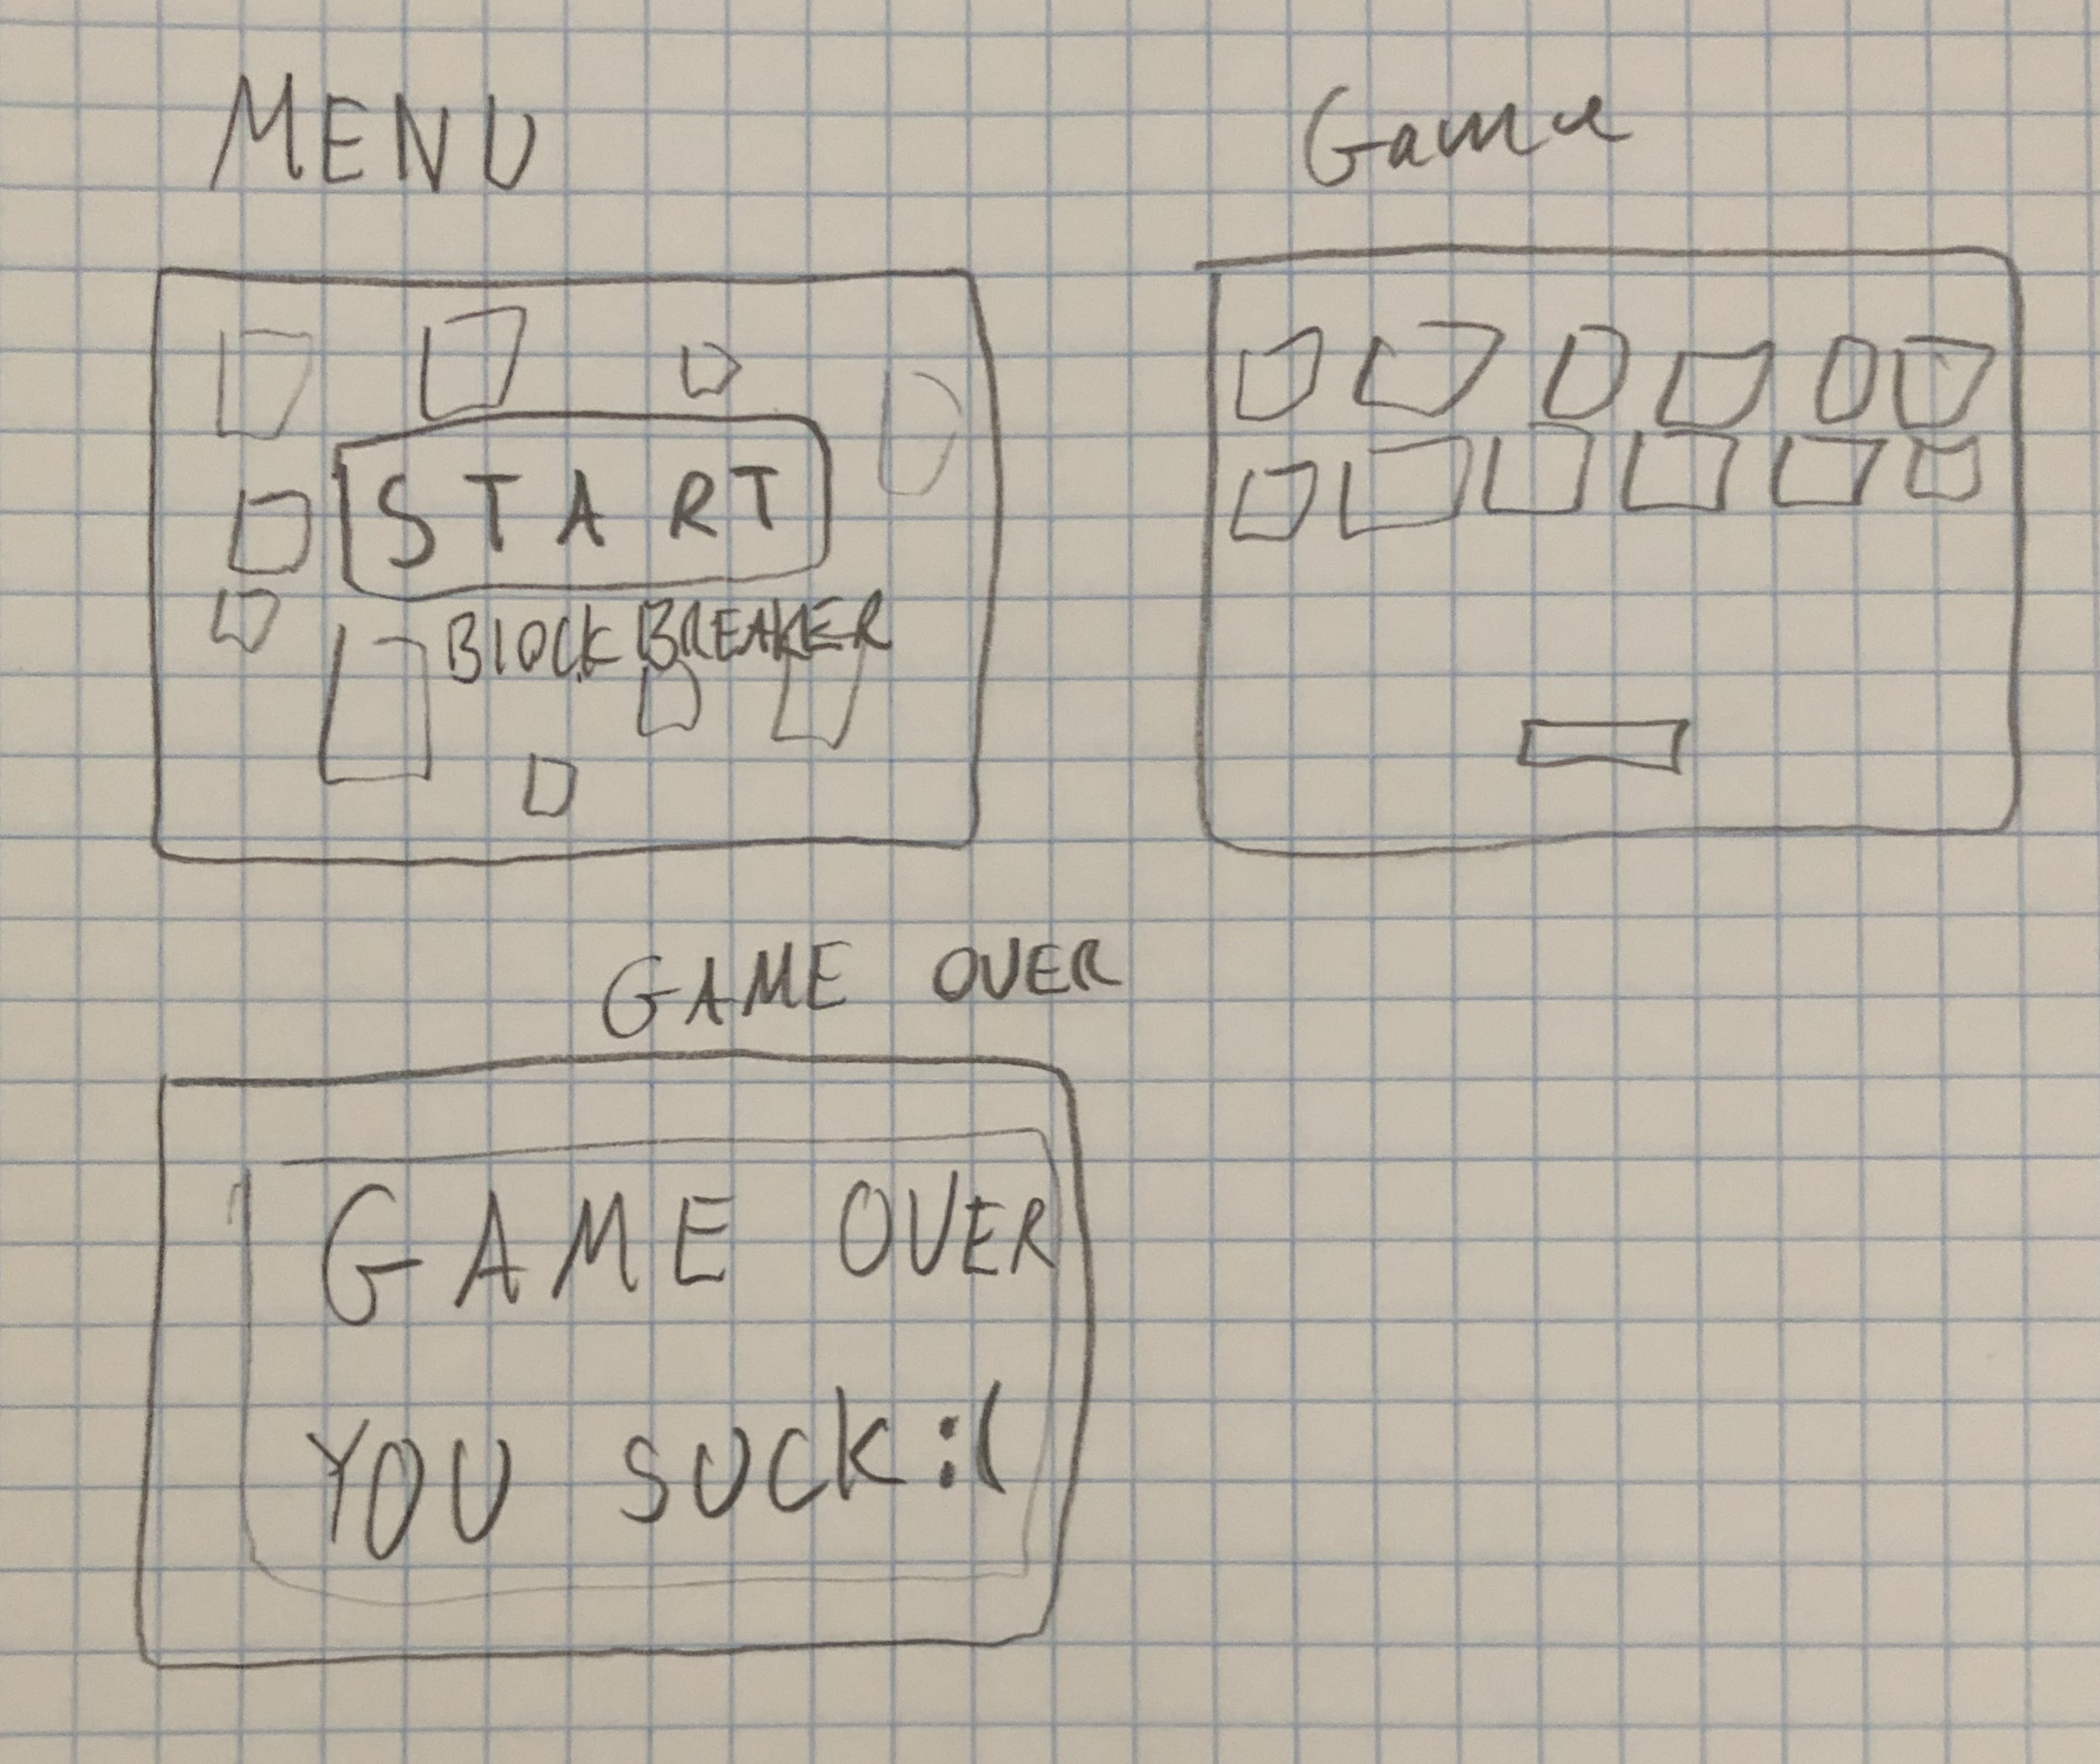 MENU
Game
START
BLOCK BREAKER
GAME OVER
GAME OVER
YOU SUCK :(